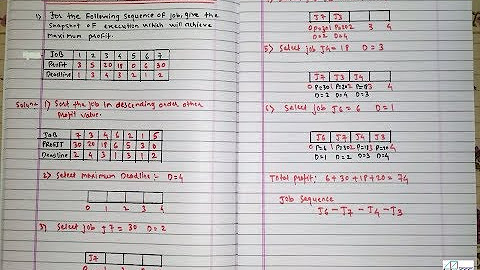 1) For the Following Sequence of job, give the
Snapshot of execution which will achieve
Maximum profit.
JOB 1 2 3 4 5 6 7
Profit 3 5 20 18 0 6 30
Deadline 1 3 4 3 2 1 2
Soln:- 1) Sort the job in descending order other
profit value.
JOB 7 3 4 6 2 1 5
PROFIT 30 20 18 6 5 3 0
Deadline 2 4 3 1 3 1 2
2) Select maximum Deadline :- D=4
0 1 2 3 4
3) Select job J7 = 30 D=2
J7
J7 J3
0 P=30 1 P=20 2 3 4
D=2 D=4
5) Select job J4 = 18 D=3
J7 J3 J4
0 P=30 1 P=20 2 P=18 3 4
D=2 D=4 D=3
6) Select job J6 = 6 D=1
J6 J7 J4 J3
0 P=6 1 P=30 2 P=18 3 P=20 4
D=1 D=2 D=3 D=4
Total profit: 6+30+18+20 = 74
Job Sequence
J6 - J7 - J4 - J3